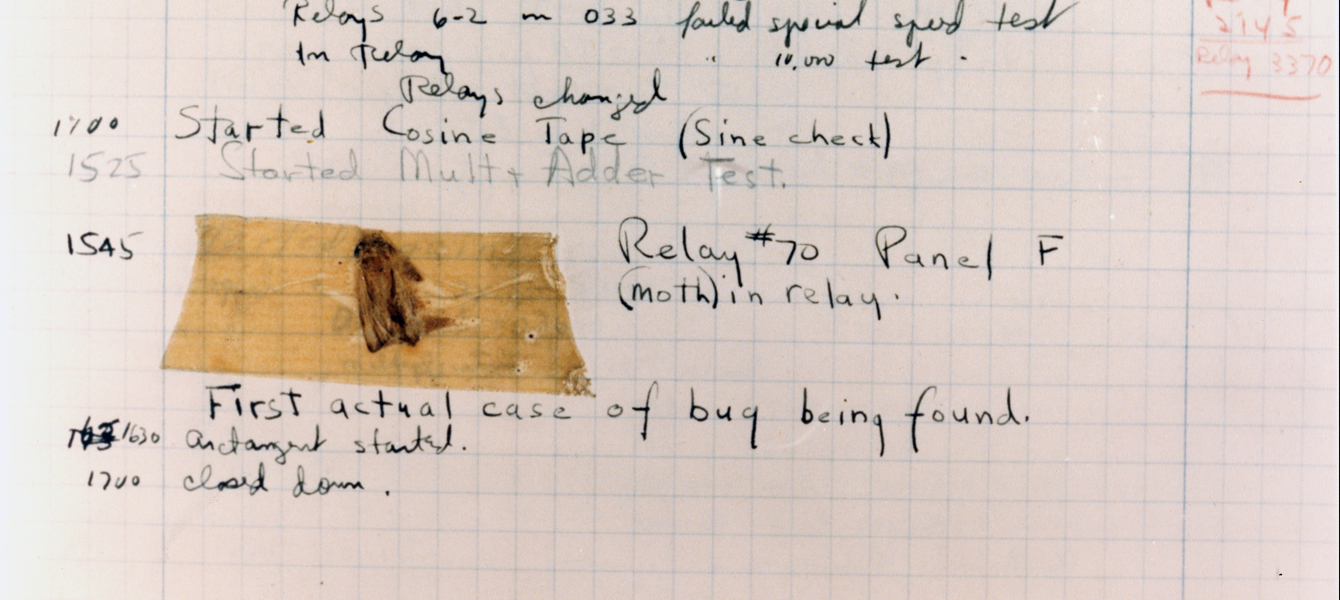 Relays 6-2 in 033 failed special speed test
In Relay " 10,000 test.
Relays changed
2145
Relay 3370
1700 Started Cosine Tape (Sine check)
1525 Started Mult + Adder Test.
1545 Relay #70 Panel F
(Moth) in relay.
First actual case of bug being found.
1630 arctangent started.
1700 closed down.